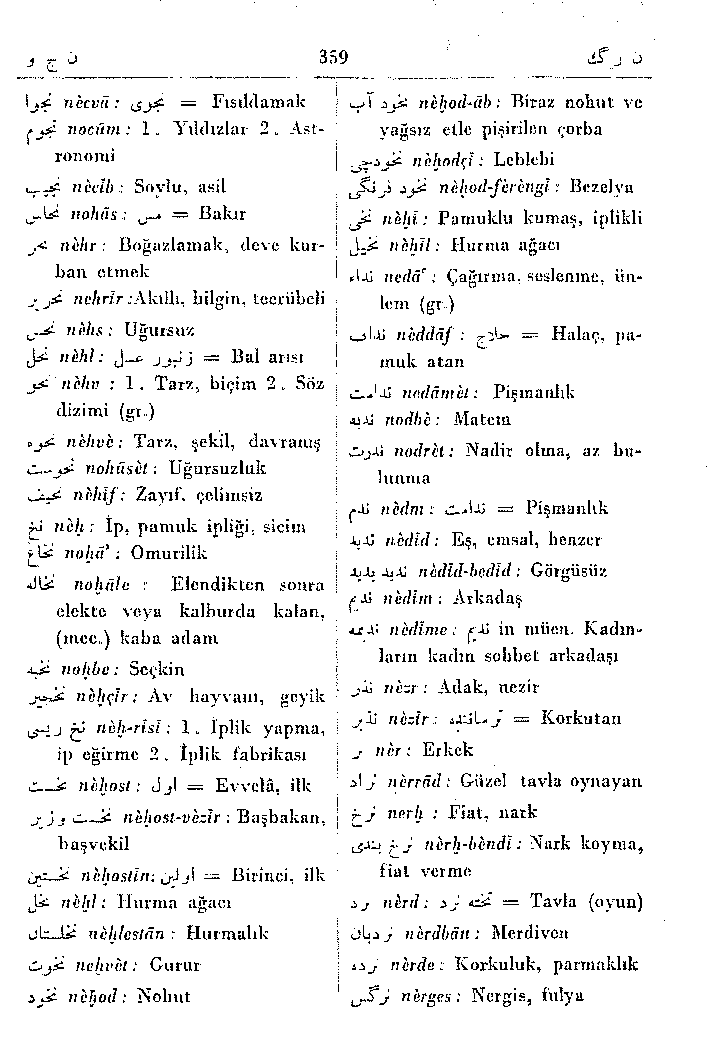 ن ج و 359 ن ر گ
نجوا nècvā : نجوی = Fısıldamak
نجوم nocūm : 1. Yıldızlar 2. Ast-
ronomi
نجیب nècīb : Soylu, asil
نحاس nohās : مس = Bakır
نحر nèhr : Boğazlamak, deve kur-
ban etmek
نحریر nehrīr : Akıllı, bilgin, tecrübeli
نحس nèhs : Uğursuz
نحل nèhl : زنبور عسل = Bal arısı
نحو nèhv : 1. Tarz, biçim 2. Söz
dizimi (gr.)
نحوه nèhvè : Tarz, şekil, davranış
نحوست nohūsèt : Uğursuzluk
نحیف nèhīf : Zayıf, çelimsiz
نخ nèḫ : İp, pamuk ipliği, sicim
نخاع noḫā' : Omurilik
نخاله noḫāle : Elendikten sonra
elekte veya kalburda kalan,
(mec.) kaba adam
نخبه noḫbe : Seçkin
نخجیر nèḫçīr : Av hayvanı, geyik
نخ ریسی nèḫ-rīsī : 1. İplik yapma,
ip eğirme 2. İplik fabrikası
نخست nèḫost : اول = Evvelâ, ilk
نخست وزیر nèḫost-vèzīr : Başbakan,
başvekil
نخستین nèḫostīn : اولین = Birinci, ilk
نخل nèḫl : Hurma ağacı
نخلستان nèḫlestān : Hurmalık
نخوت neḫvèt : Gurur
نخود nèḫod : Nohut
نخود آب nèḫod-āb : Biraz nohut ve
yağsız etle pişirilen çorba
نخودچی nèḫodçī : Leblebi
نخود فرنگی nèḫod-fèrèngī : Bezelya
نخی nèḫī : Pamuklu kumaş, iplikli
نخیل nèḫīl : Hurma ağacı
نداء nedā' : Çağırma, seslenme, ün-
lem (gr.)
نداف nèddāf : حلاج = Halaç, pa-
muk atan
ندامت nedāmèt : Pişmanlık
ندبه nodbè : Matem
ندرت nodrèt : Nadir olma, az bu-
lunma
ندم nèdm : ندامت = Pişmanlık
ندید nèdīd : Eş, emsal, benzer
ندید بدید nèdīd-bedīd : Görgüsüz
ندیم nèdīm : Arkadaş
ندیمه nèdīme : ندیم in müen. Kadın-
ların kadın sohbet arkadaşı
نذر nèzr : Adak, nezir
نذیر nèzīr : ترساننده = Korkutan
نر nèr : Erkek
نراد nèrrād : Güzel tavla oynayan
نرخ nerḫ : Fiat, nark
نرخ بندی nèrḫ-bèndī : Nark koyma,
fiat verme
نرد nèrd : تخته نرد = Tavla (oyun)
نردبان nèrdbān : Merdiven
نرده nèrde : Korkuluk, parmaklık
نرگس nèrges : Nergis, fulya